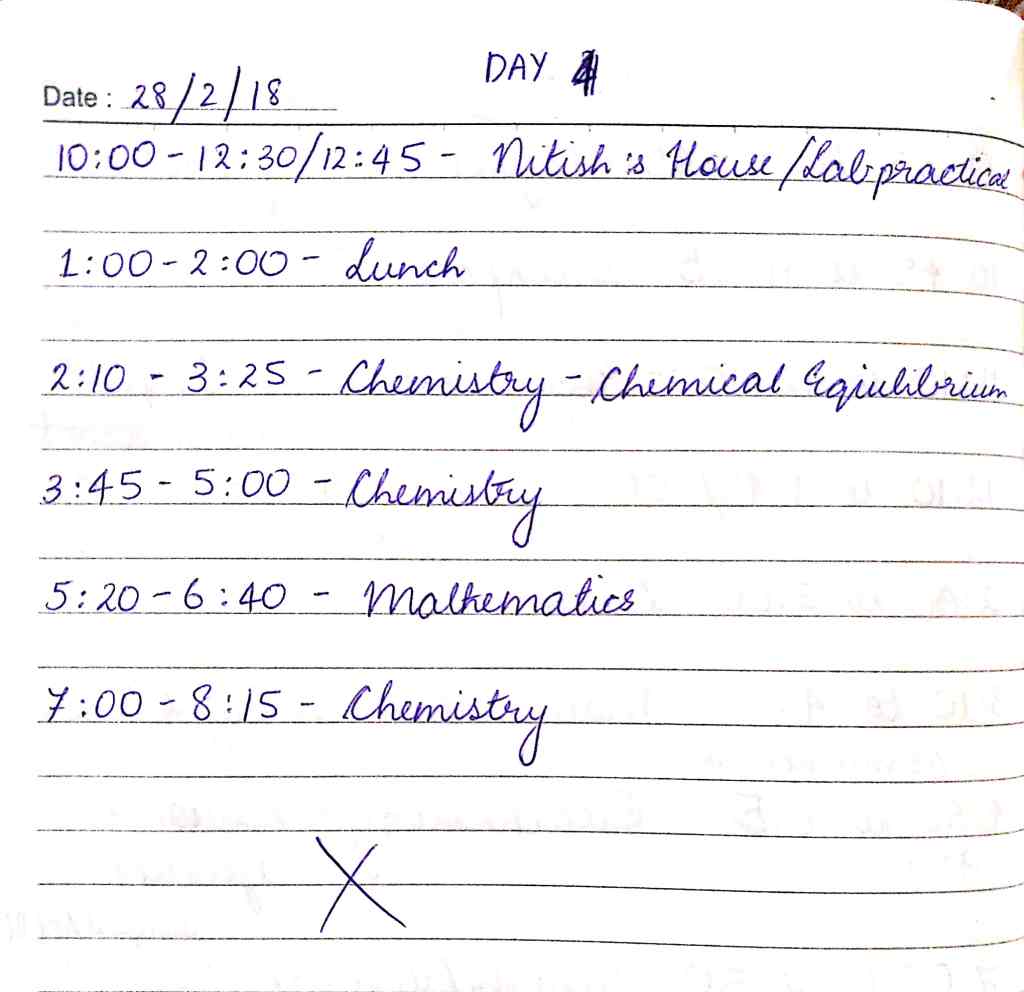 DAY 4
Date : 28/2/18
10:00 - 12:30/12:45 - Nitish's House/Lab practical
1:00 - 2:00 - Lunch
2:10 - 3:25 - Chemistry - Chemical Eqiulibrium
3:45 - 5:00 - Chemistry
5:20 - 6:40 - Mathematics
7:00 - 8:15 - Chemistry